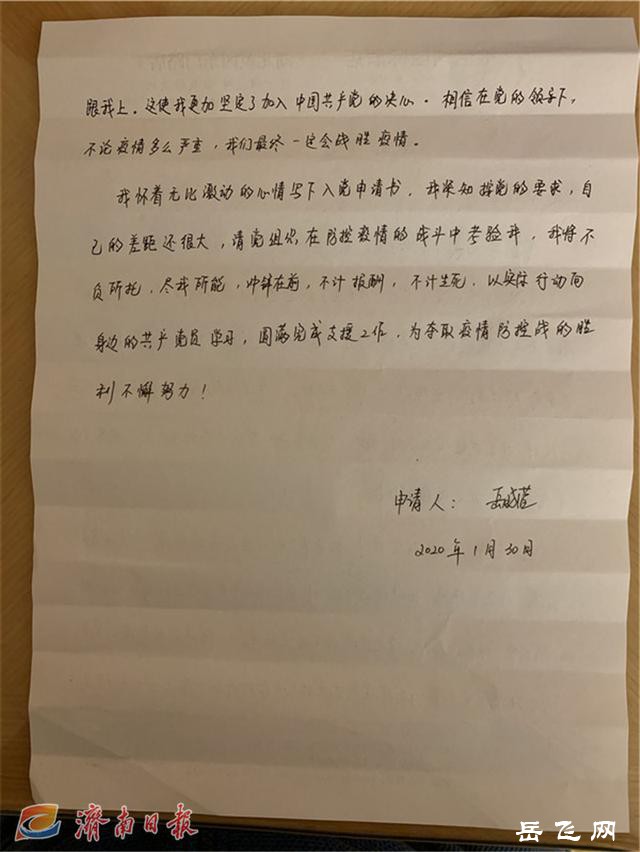 跟我上。这使我更加坚定了加入中国共产党的决心。相信在党的领导下,
不论疫情多么严重,我们最终一定会战胜疫情。
我怀着无比激动的心情写下入党申请书,我深知按党的要求,自
己的差距还很大,请党组织在防控疫情的战斗中考验我,我将不
负所托,尽我所能,冲锋在前,不计报酬,不计生死,以实际行动向
身边的共产党员学习,圆满完成支援工作,为夺取疫情防控战的胜
利不懈努力!
申请人:岳
2020年1月30日
濟南日報
岳飞网